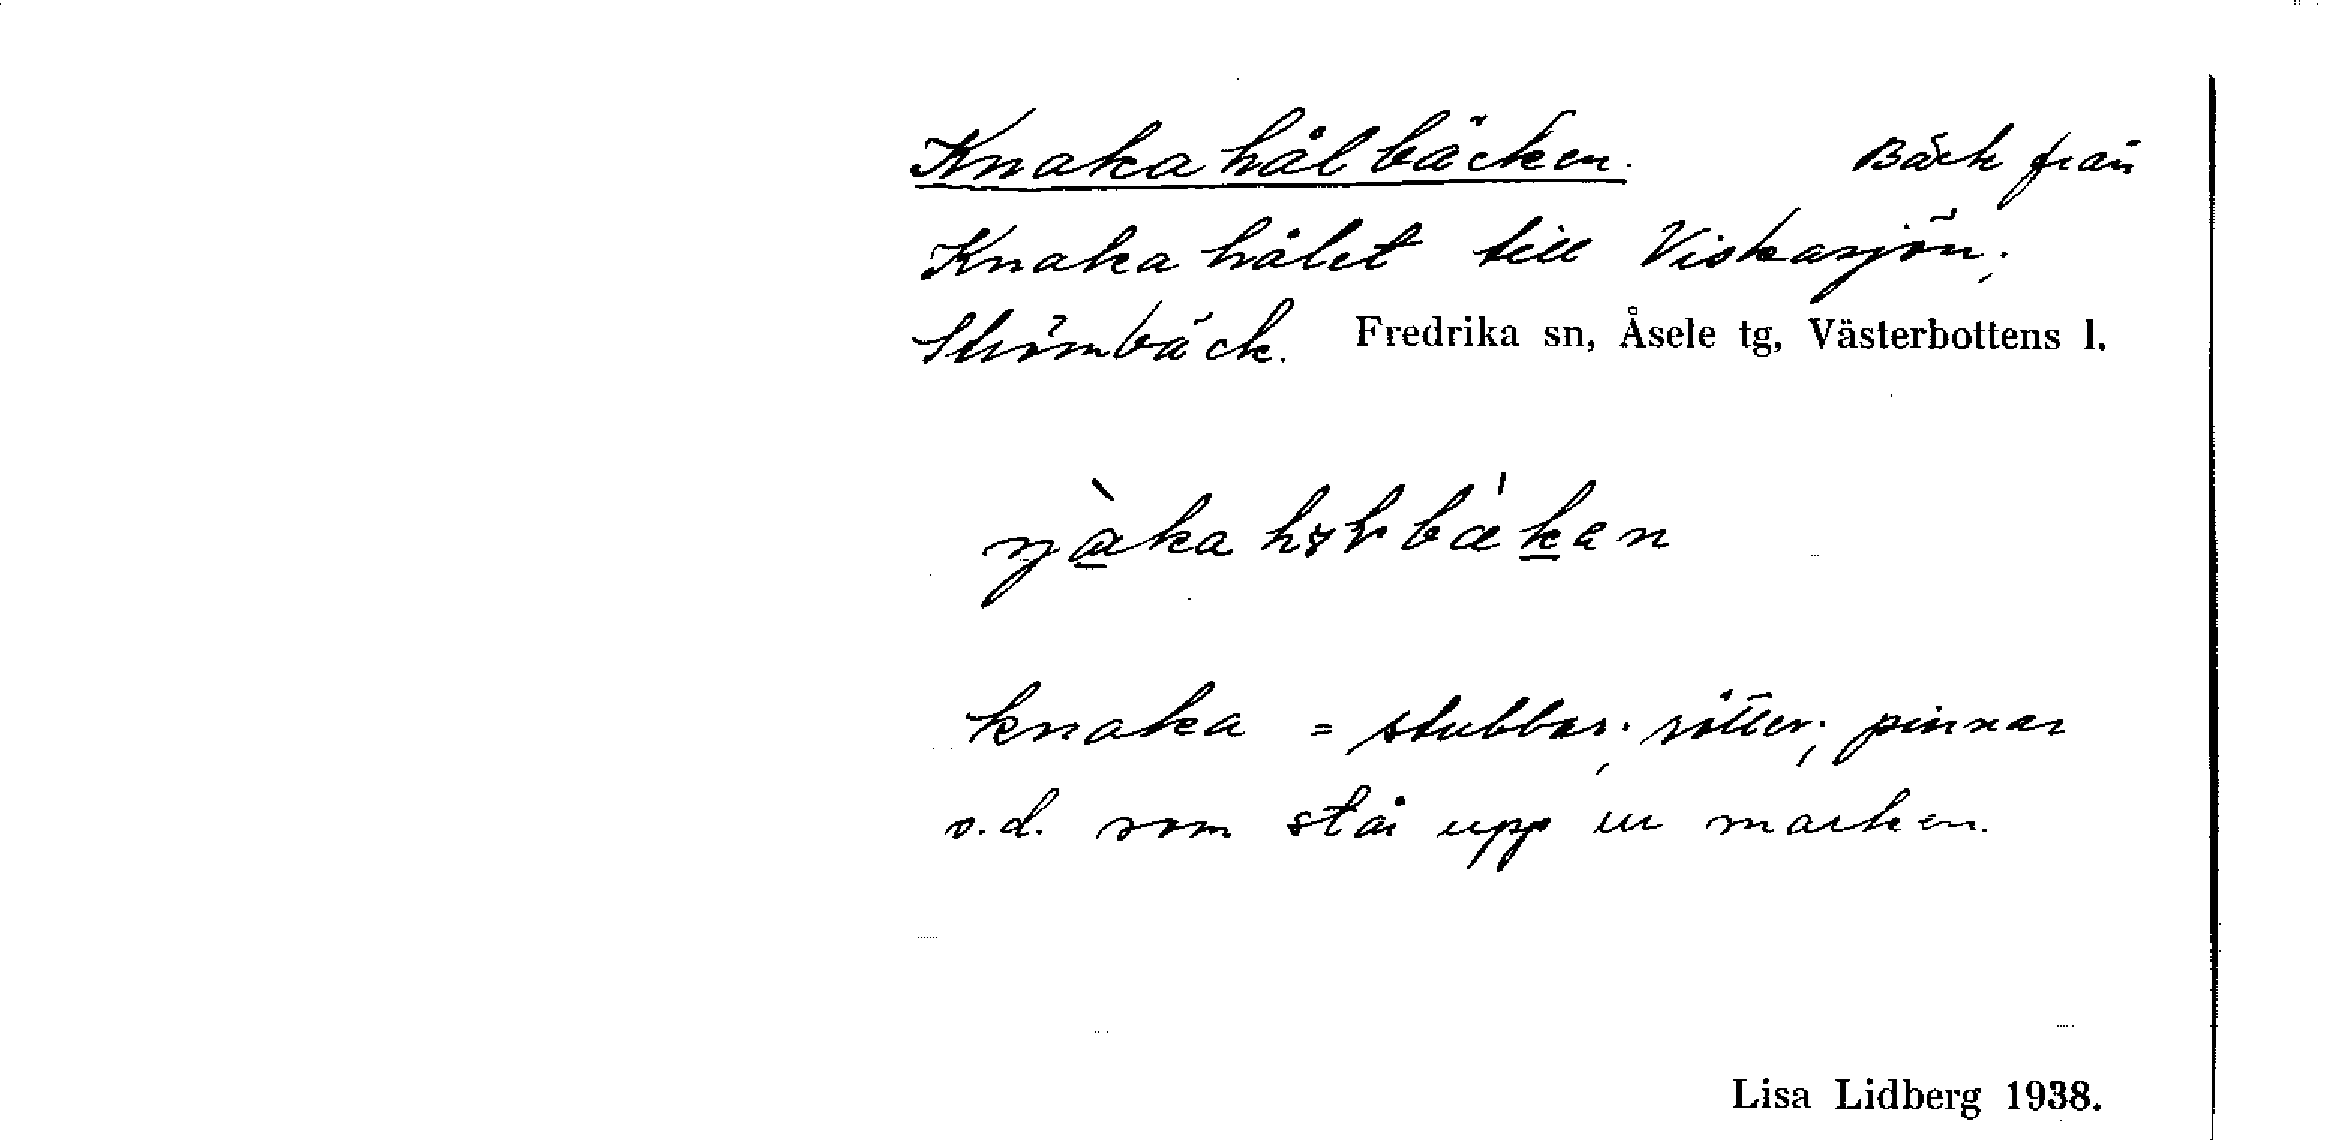 Knakahålbäcken. Bäck från
Knakahålet till Viskasjön;
Strömbäck. Fredrika sn, Åsele tg, Västerbottens l.
knaka = stubbar; rötter; pinnar
o.d. som står upp ur marken.
Lisa Lidberg 1938.